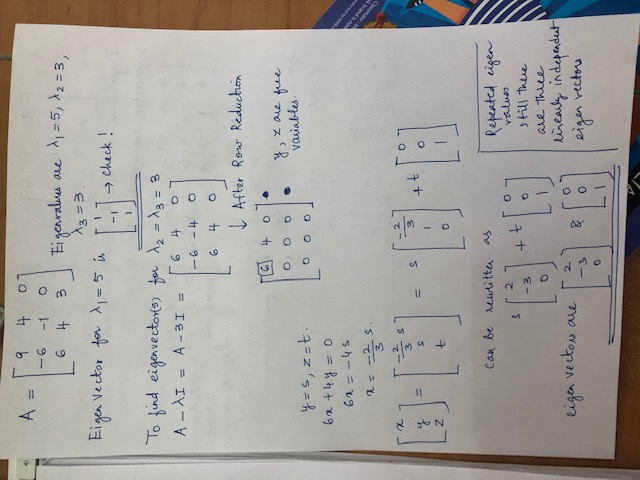 A = [ 9 4 0
-6 -1 0
6 4 3 ] Eigenvalues are λ₁=5, λ₂=3,
λ₃=3.
Eigen Vector for λ₁=5 is [ 1
-1
1 ] → check!
To find eigenvector(s) for λ₂ = λ₃ = 3
A - λI = A - 3I = [ 6 4 0
-6 -4 0
6 4 0 ]
↓ After Row Reduction
[ 6 4 0
0 0 0
0 0 0 ] y, z are free
variables.
y=s, z=t.
6x+4y = 0
6x = -4s
x = -2/3 s.
[ x
y
z ] = [ -2/3 s
s
t ] = s [ -2/3
1
0 ] + t [ 0
0
1 ]
can be rewritter as
s [ 2
-3
0 ] + t [ 0
0
1 ]
eigen vectors are [ 2
-3
0 ] & [ 0
0
1 ]
Repeated eigen
values
still there
are three
linearly independent
eigen vectors